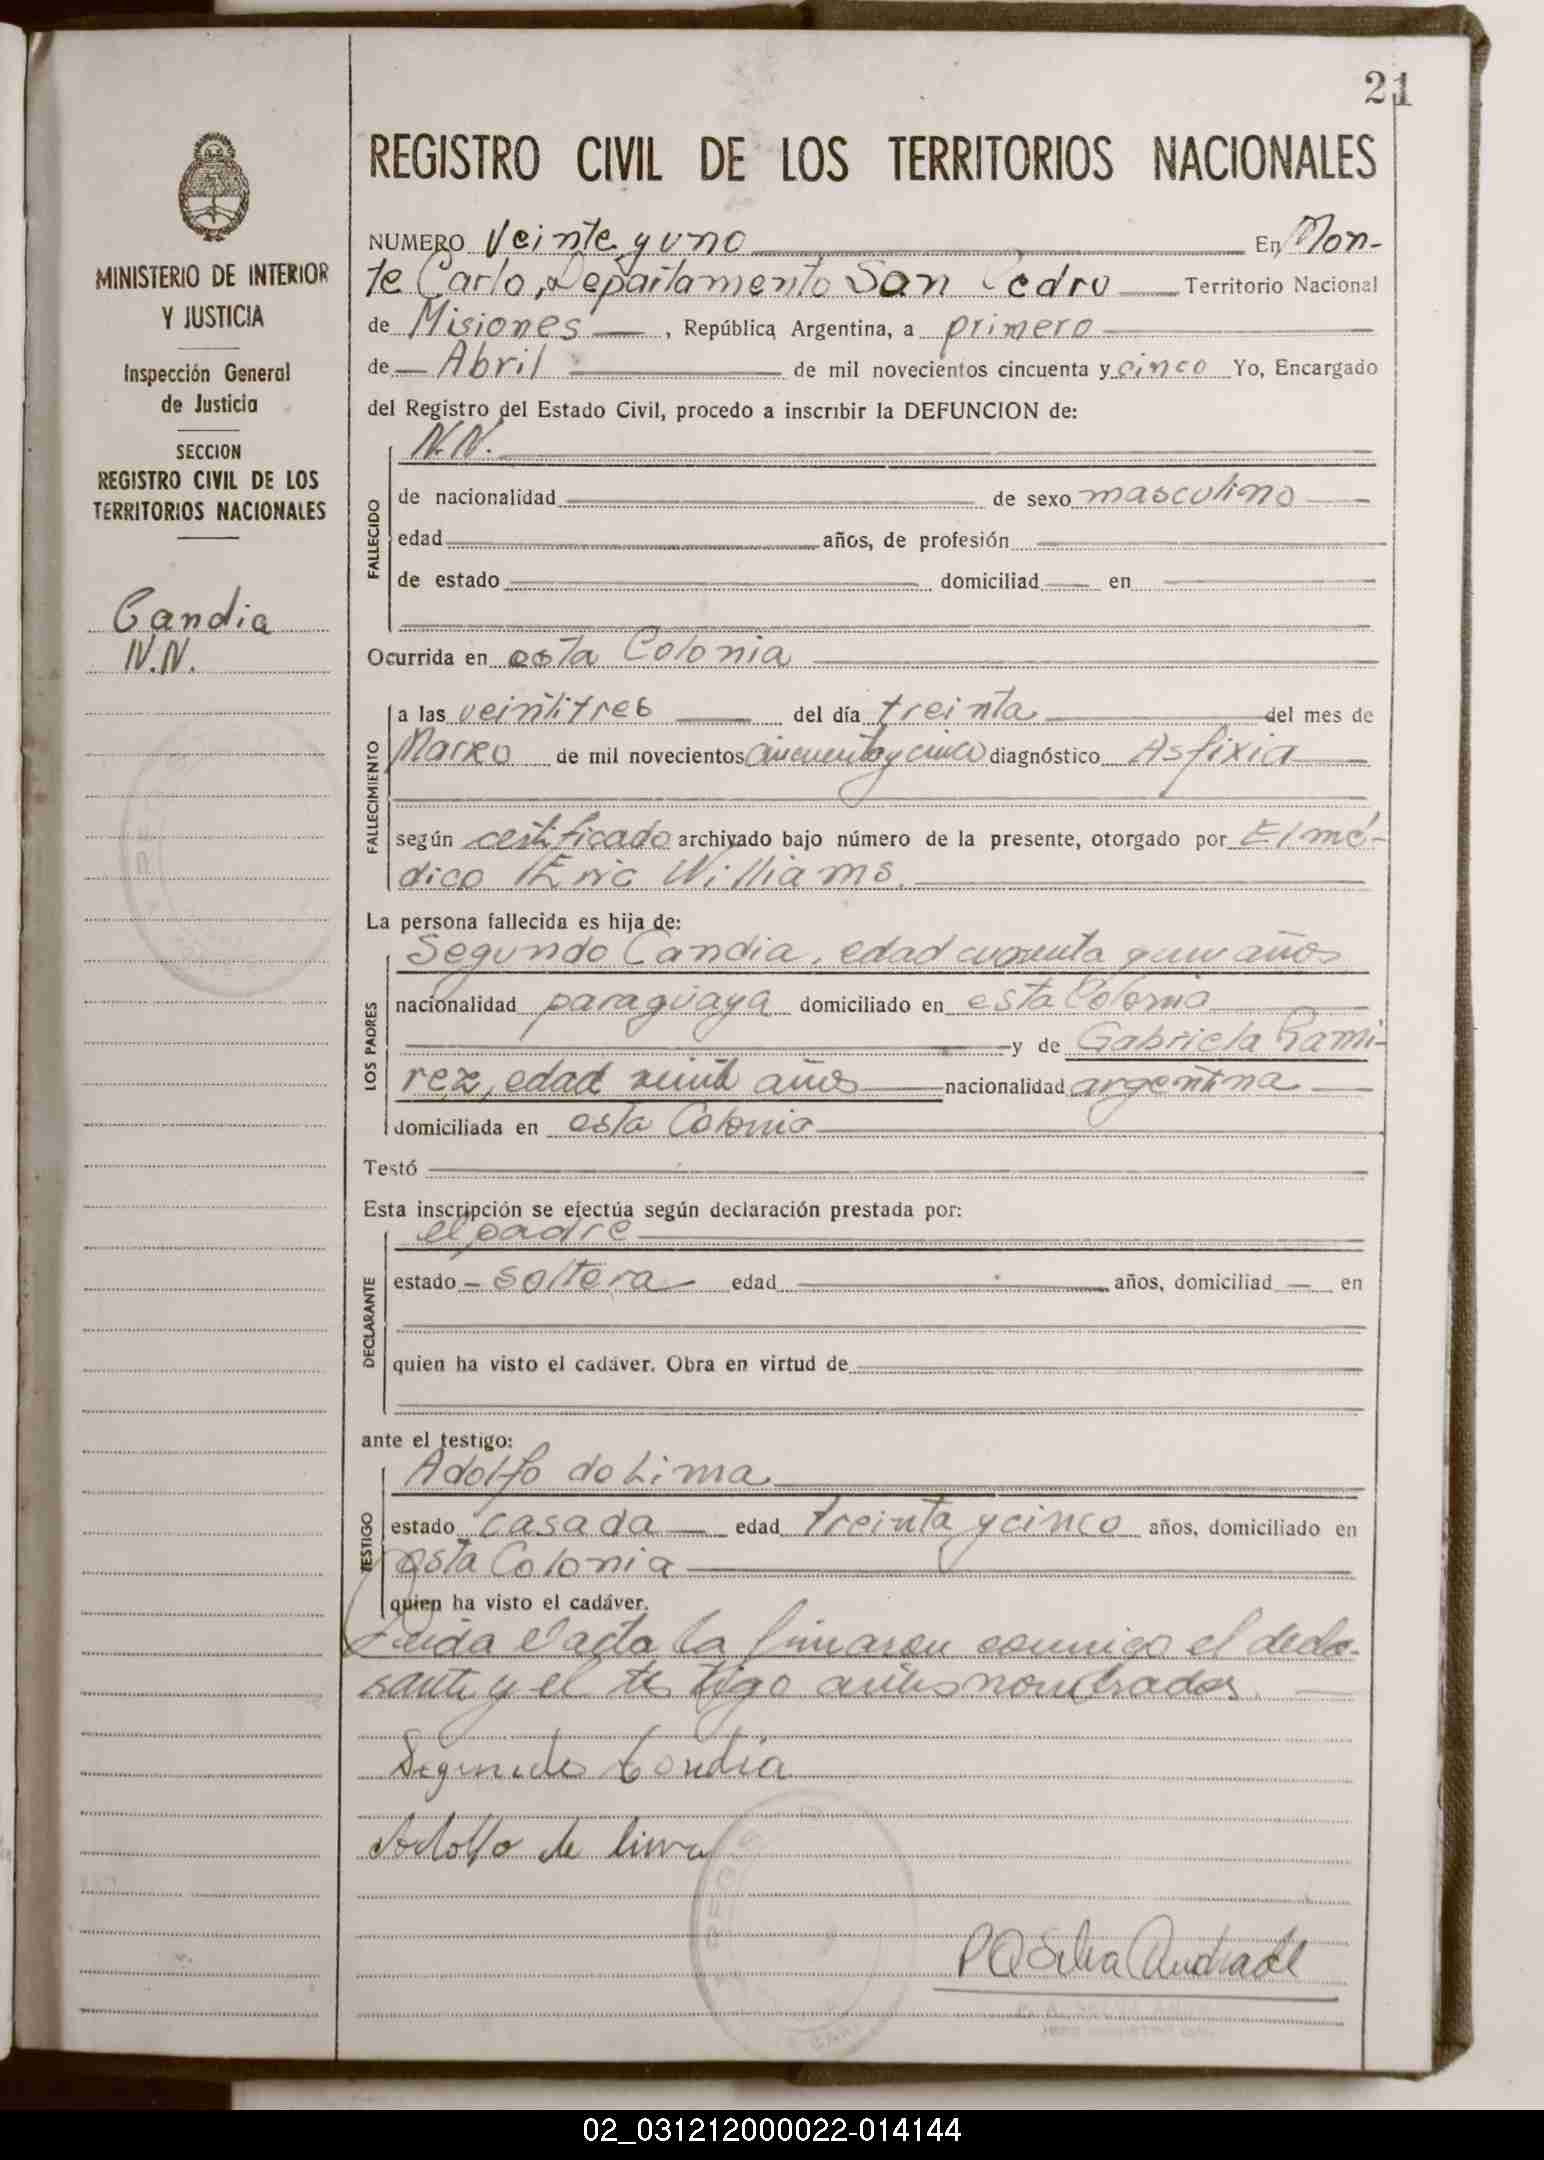 21
MINISTERIO DE INTERIOR
Y JUSTICIA
Inspección General
de Justicia
SECCION
REGISTRO CIVIL DE LOS
TERRITORIOS NACIONALES
Candia
N.N.
REGISTRO CIVIL DE LOS TERRITORIOS NACIONALES
NUMERO Veinte y uno En Mon-
te Carlo, Departamento San Pedro Territorio Nacional
de Misiones, República Argentina, a primero
de Abril de mil novecientos cincuenta y cinco Yo, Encargado
del Registro del Estado Civil, procedo a inscribir la DEFUNCION de:
N.N.
FALLECIDO
de nacionalidad de sexo masculino
edad años, de profesión
de estado domiciliad en
Ocurrida en esta Colonia
FALLECIMIENTO
a las veintitres del día treinta del mes de
Marzo de mil novecientos cincuenta y cinco diagnóstico Asfixia
según certificado archivado bajo número de la presente, otorgado por El mé-
dico Eric Williams.
La persona fallecida es hija de:
LOS PADRES
Segundo Candia, edad cuarenta años
nacionalidad paraguaya domiciliado en esta Colonia
y de Gabriela Rami-
rez, edad años nacionalidad argentina
domiciliada en esta Colonia
Testó
Esta inscripción se efectúa según declaración prestada por:
el padre
DECLARANTE
estado soltera edad años, domiciliad en
quien ha visto el cadáver. Obra en virtud de
ante el testigo:
TESTIGO
Adolfo de Lima
estado casada edad treinta y cinco años, domiciliado en
esta Colonia
quien ha visto el cadáver.
Leida el acta la firmaron conmigo el decla-
rante y el testigo antes nombrados.
Segundo Candia
Adolfo de lima
P A Silva Andrade
02_031212000022-014144